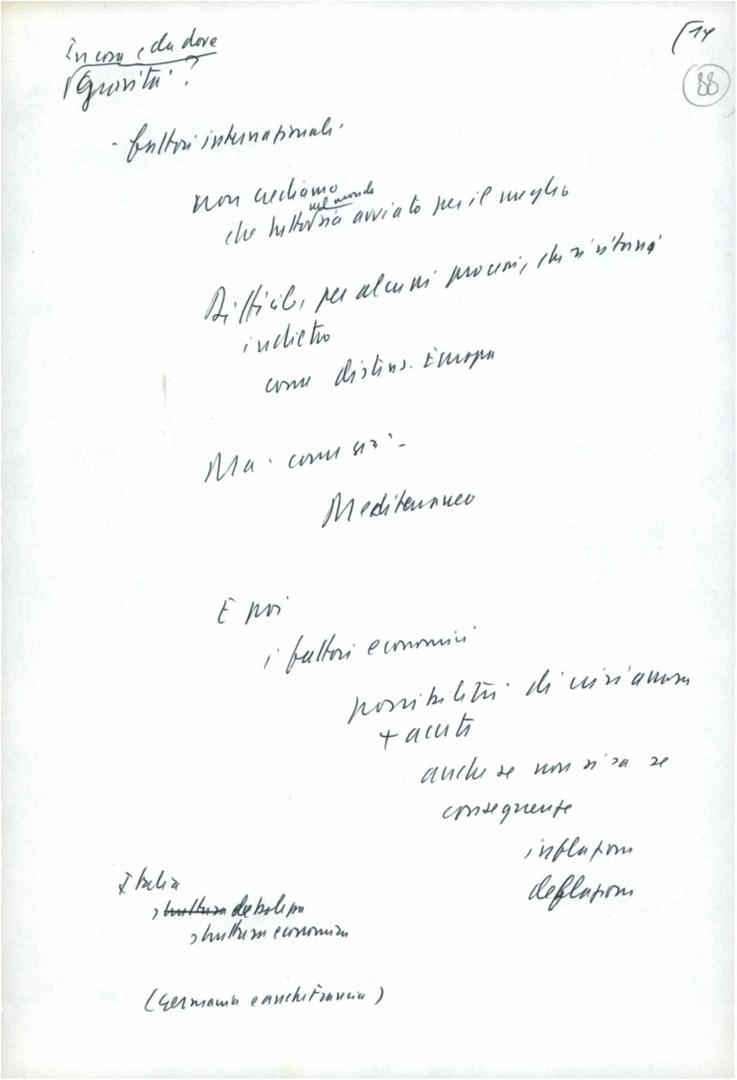 In cosa e da dove
gravità?
[14
88
- fattori internazionali.
non crediamo
nel mondo
che tutto sia avviato per il meglio
Difficile, per alcuni processi, che si ritorni
indietro
come distens. Europa
Ma. come sta? -
Mediterraneo
E poi
i fattori economici
possibilità di crisi ancora
+ acuta
anche se non si sa se
conseguenze
inflazione
deflazione
Italia
struttura debolezza
struttura economica
(Germania e anche Francia)